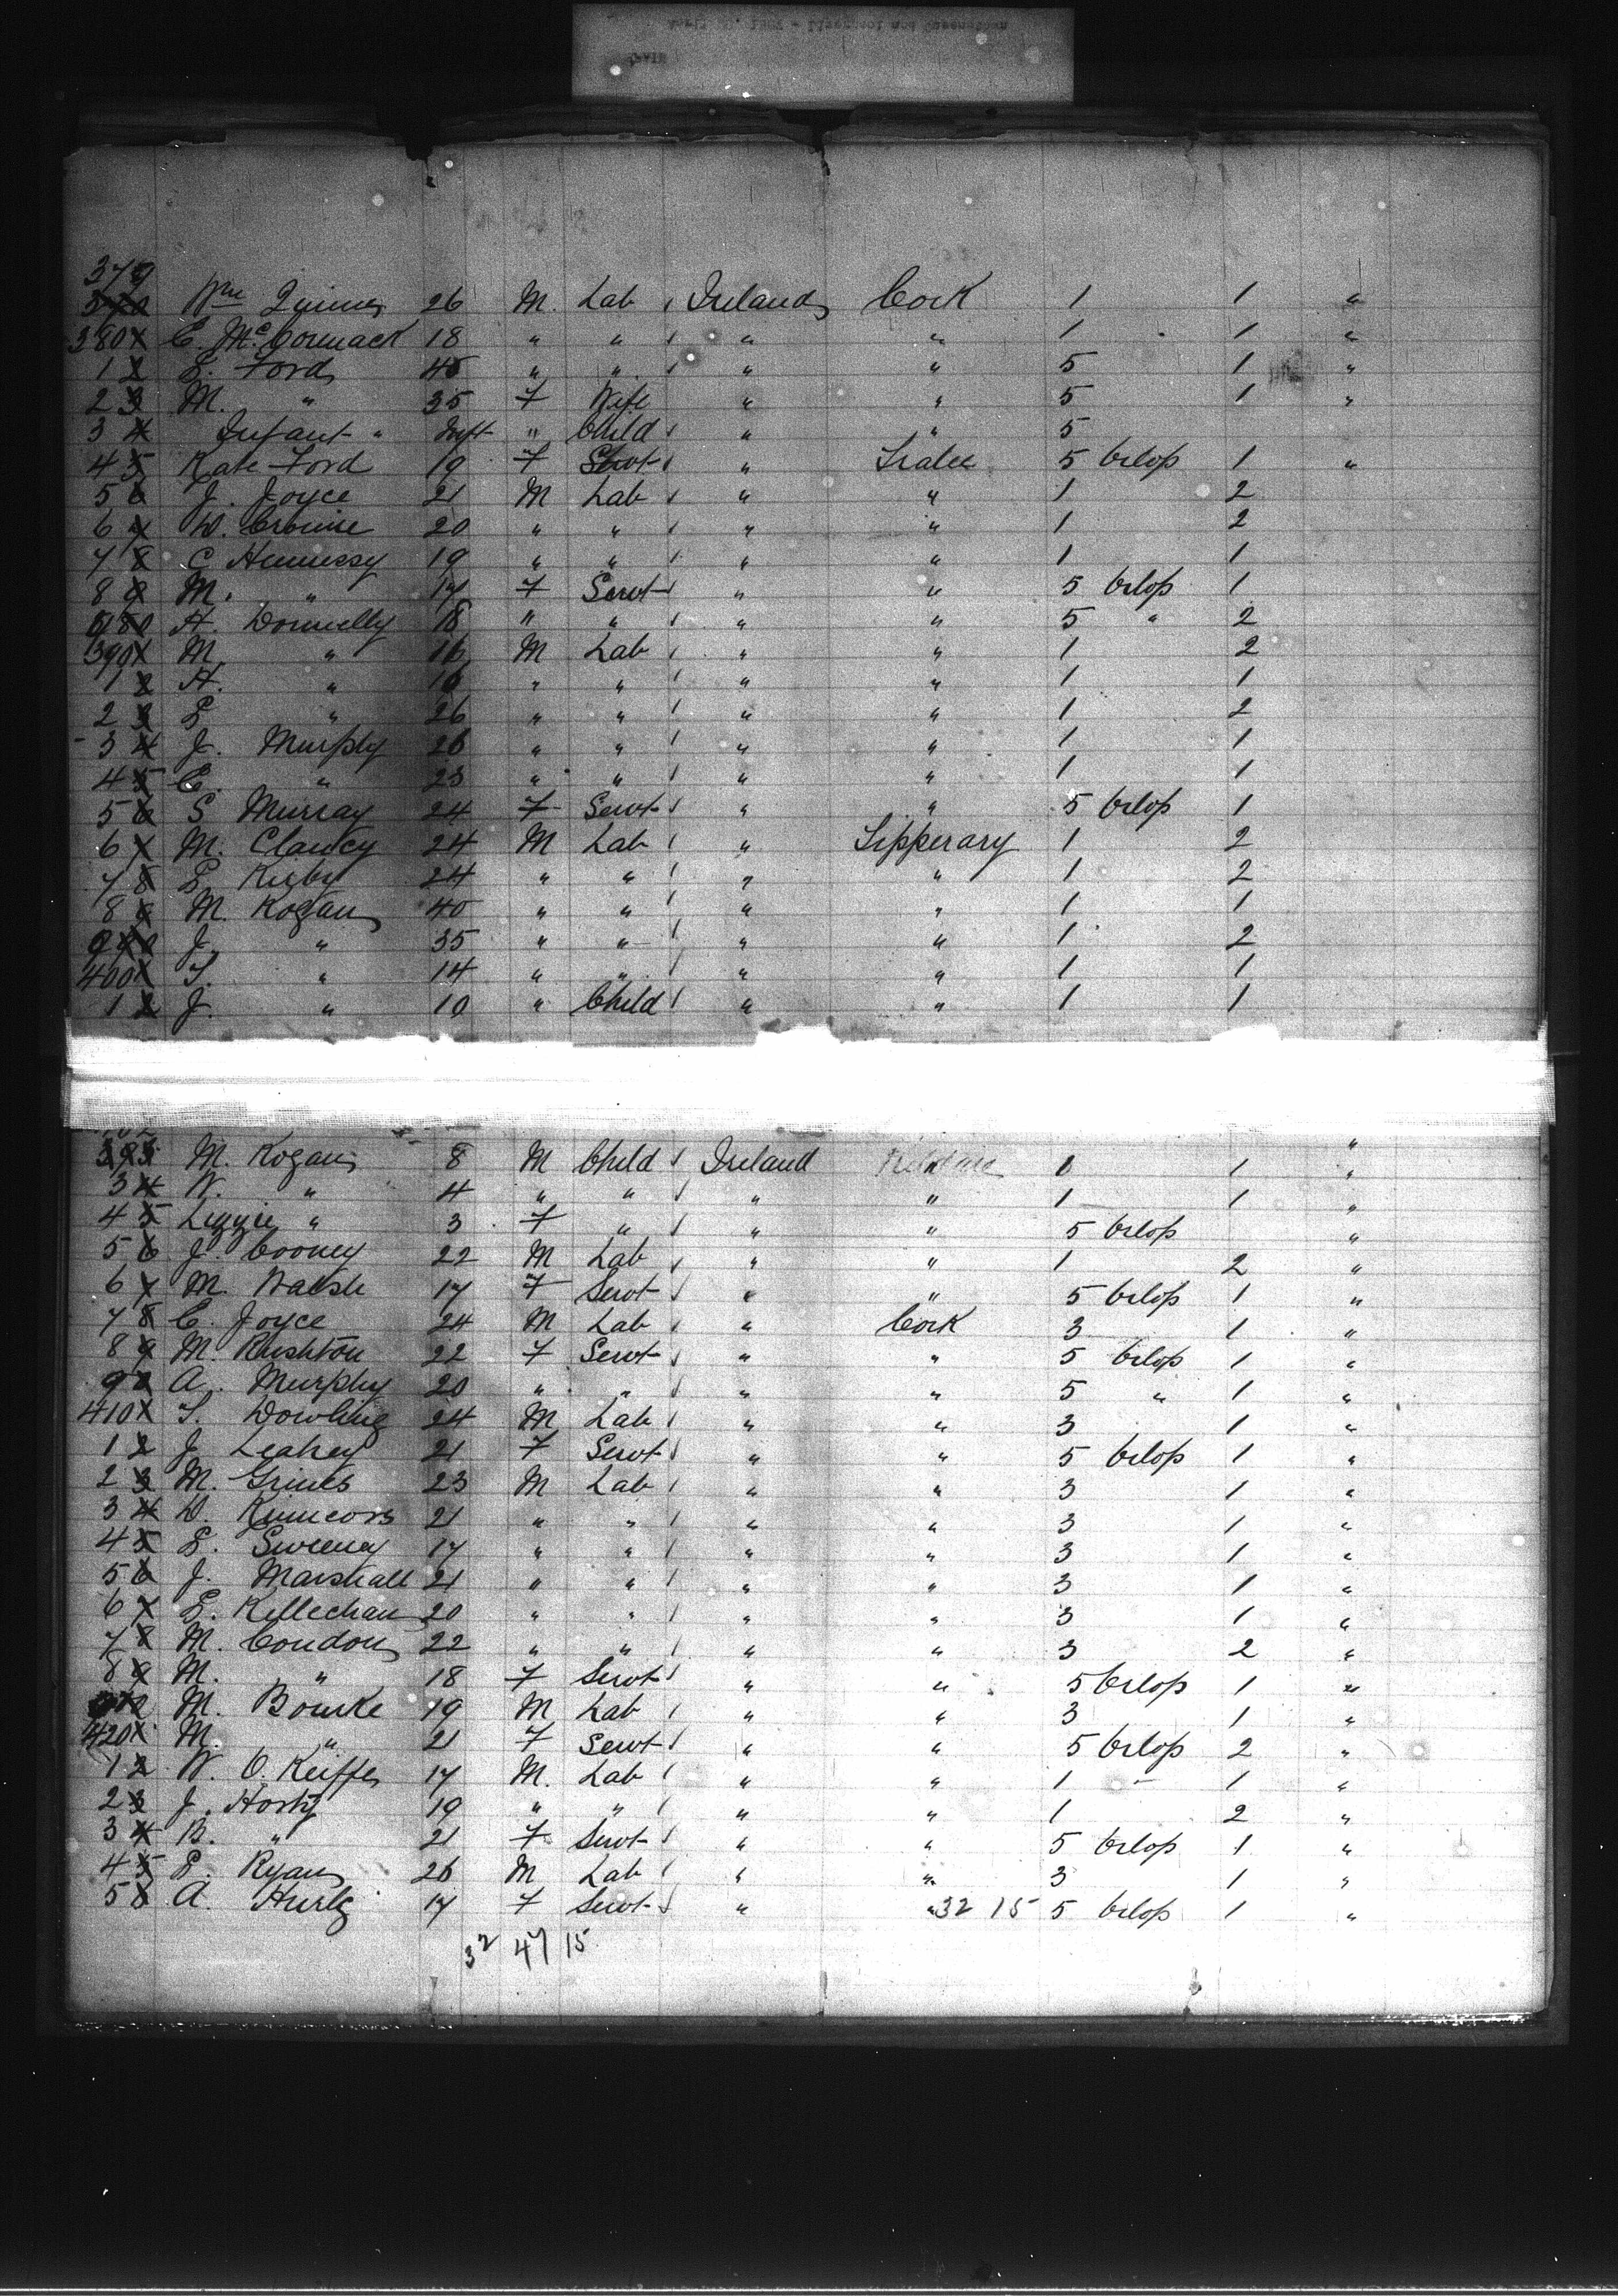 379
Wm Quinn 26 M. Lab / Ireland Cork 1 1 "
380 C. McCormack 18 " " / " " 1 1 "
1 2 Ford 45 " " / " " 5 1 "
2 3 M. " 35 F Wife " " 5 1 "
3 4 Infant " Inft " Child / " " 5
4 5 Kate Ford 19 F Servt / " Tralee 5 Orlop 1 "
5 6 J. Joyce 21 M Lab / " " 1 2
6 7 D. 20 " " / " " 1 2
7 8 C Hennessy 19 " " / " " 1 1
8 9 M. " 17 F Servt / " " 5 Orlop 1
H. Donnelly 18 " " / " " 5 " 2
390 M. " 16 M Lab / " " 1 2
1 2 H. " " " / " " 1 1
2 3 " 26 " " / " " 1 2
3 4 J. Murphy 26 " " / " " 1 1
4 5 C. " 23 " " / " " 1 1
5 6 S Murray 24 F Servt / " " 5 Orlop 1
6 7 M. Clancy 24 M Lab / " Tipperary 1 2
7 8 Kirby 24 " " / " " 1 2
8 9 M. Kogan 40 " " / " " 1 1
J. " 35 " " / " " 1 2
400 T. " 14 " " / " " 1 1
1 2 J. " 10 " Child / " " 1 1
"
393 M. Kogan 8 M Child / Ireland 1 1 "
3 4 W. " 4 " " / " " 1 1 "
4 5 Lizzie " 3 F " / " " 5 Orlop "
5 6 J. Cooney 22 M Lab / " " 1 2 "
6 7 M. Walsh 17 F Servt / " " 5 Orlop 1 "
7 8 C. Joyce 24 M Lab / " Cork 3 1 "
8 9 M. Rushton 22 F Servt / " " 5 Orlop 1 "
A. Murphy 20 " " / " " 5 " 1 "
410 T. Dowling 24 M Lab / " " 3 1 "
1 2 J Leahey 21 F Servt / " " 5 Orlop 1 "
2 3 M. Grimes 23 M Lab / " " 3 1 "
3 4 D. 21 " " / " " 3 1 "
4 5 Sweeney 17 " " / " " 3 1 "
5 6 J. Marshall 21 " " / " " 3 1 "
6 7 Kellechan 20 " " / " " 3 1 "
7 8 M. Condon 22 " " / " " 3 2 "
8 9 M. " 18 F Servt / " " 5 Orlop 1 "
M. Bourke 19 M Lab / " " 3 1 "
420 M. " 21 F Servt / " " 5 Orlop 2 "
1 2 W. O. Keiffe 17 M. Lab / " " 1 1 "
2 3 J. Horty 19 " " / " " 1 2 "
3 4 B. " 21 F Servt / " " 5 Orlop 1 "
4 5 Ryan 26 M Lab / " " 3 1 "
5 6 A. Hurly 17 F Servt / " " 32 15 5 Orlop 1 "
32 47 15